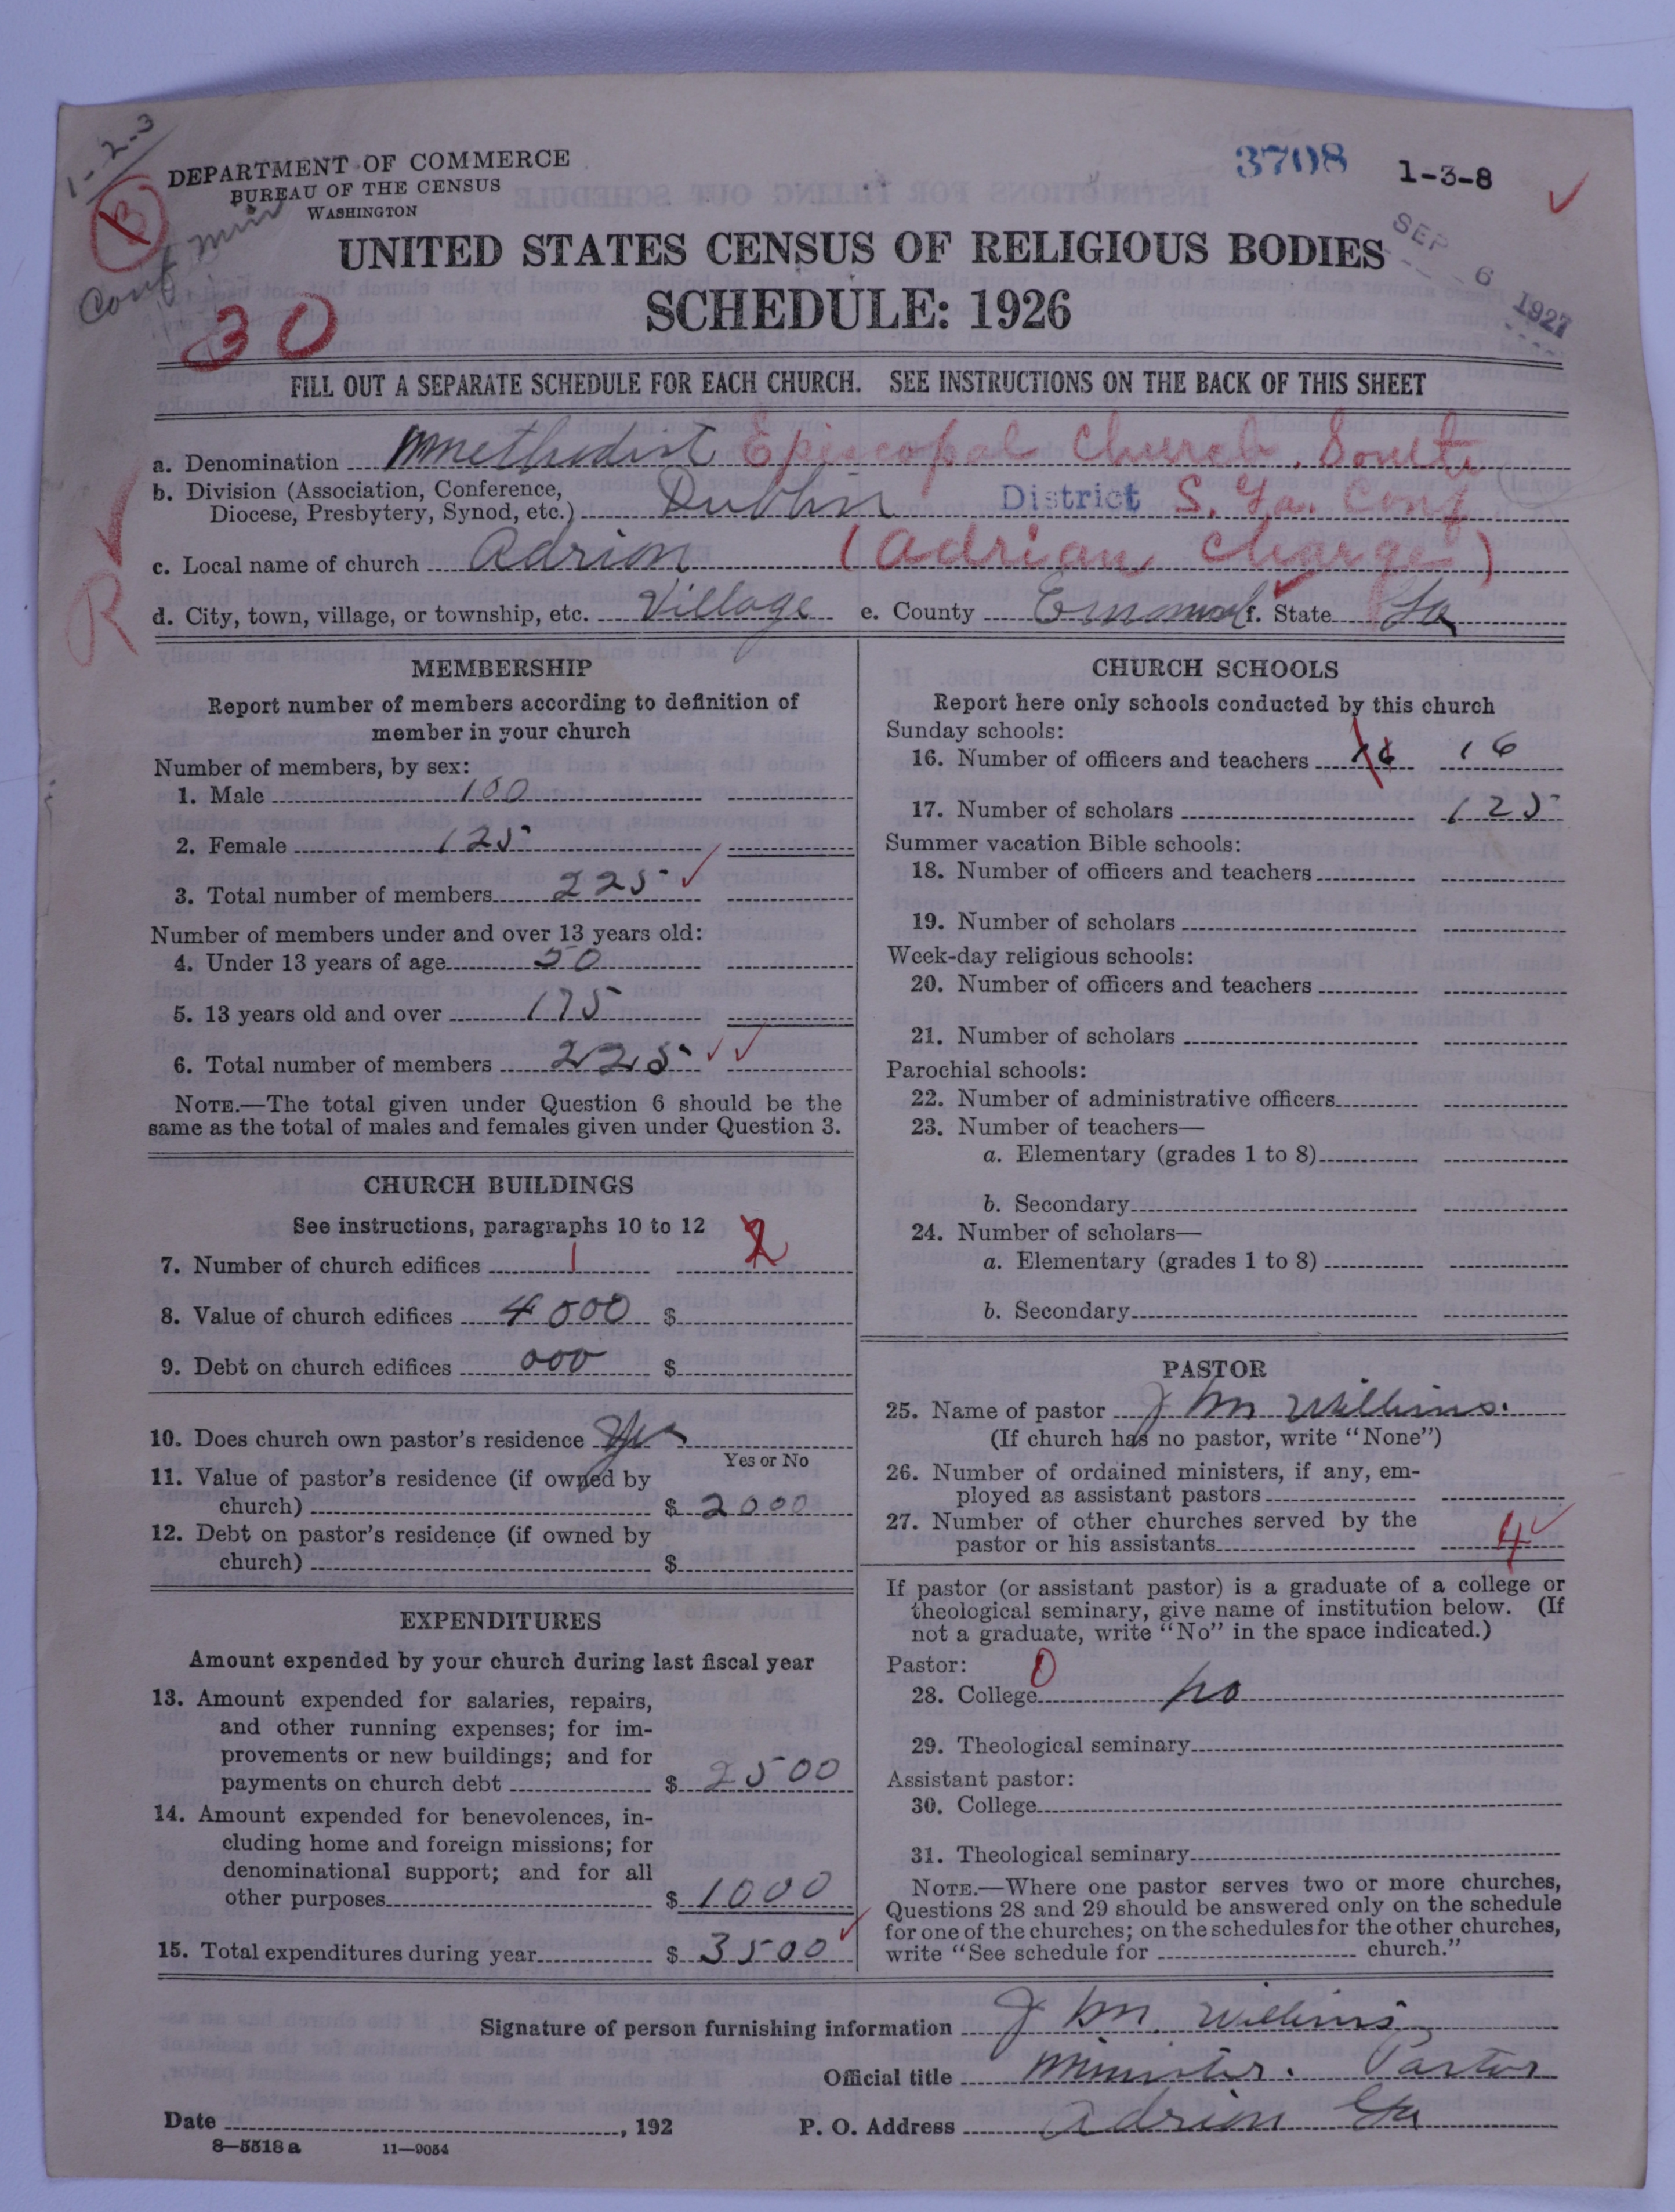 1-2-3
B
Conf min
30
DEPARTMENT OF COMMERCE
BUREAU OF THE CENSUS
WASHINGTON
3708 1-3-8
SEP 6 1927
UNITED STATES CENSUS OF RELIGIOUS BODIES
SCHEDULE: 1926
FILL OUT A SEPARATE SCHEDULE FOR EACH CHURCH. SEE INSTRUCTIONS ON THE BACK OF THIS SHEET
a. Denomination Methodist Episcopal Church, South
b. Division (Association, Conference,
Diocese, Presbytery, Synod, etc.) Dublin District S. Ga. Conf
c. Local name of church Adrion (Adrian Charge)
R
d. City, town, village, or township, etc. Village e. County Emanuel f. State Ga
MEMBERSHIP
Report number of members according to definition of
member in your church
Number of members, by sex:
1. Male 100
2. Female 125
3. Total number of members 225
Number of members under and over 13 years old:
4. Under 13 years of age 50
5. 13 years old and over 175
6. Total number of members 225
NOTE.—The total given under Question 6 should be the
same as the total of males and females given under Question 3.
CHURCH BUILDINGS
See instructions, paragraphs 10 to 12 2
7. Number of church edifices 1
8. Value of church edifices 4000 $
9. Debt on church edifices 000 $
10. Does church own pastor's residence Yes
Yes or No
11. Value of pastor's residence (if owned by
church) $ 2000
12. Debt on pastor's residence (if owned by
church) $
EXPENDITURES
Amount expended by your church during last fiscal year
13. Amount expended for salaries, repairs,
and other running expenses; for im-
provements or new buildings; and for
payments on church debt $ 2500
14. Amount expended for benevolences, in-
cluding home and foreign missions; for
denominational support; and for all
other purposes $ 1000
15. Total expenditures during year $ 3500
CHURCH SCHOOLS
Report here only schools conducted by this church
Sunday schools:
16. Number of officers and teachers 16 16
17. Number of scholars 125
Summer vacation Bible schools:
18. Number of officers and teachers
19. Number of scholars
Week-day religious schools:
20. Number of officers and teachers
21. Number of scholars
Parochial schools:
22. Number of administrative officers
23. Number of teachers—
a. Elementary (grades 1 to 8)
b. Secondary
24. Number of scholars—
a. Elementary (grades 1 to 8)
b. Secondary
PASTOR
25. Name of pastor J M Williams.
(If church has no pastor, write "None")
26. Number of ordained ministers, if any, em-
ployed as assistant pastors
27. Number of other churches served by the
pastor or his assistants 4
If pastor (or assistant pastor) is a graduate of a college or
theological seminary, give name of institution below. (If
not a graduate, write "No" in the space indicated.)
Pastor: 0
28. College no
29. Theological seminary
Assistant pastor:
30. College
31. Theological seminary
NOTE.—Where one pastor serves two or more churches,
Questions 28 and 29 should be answered only on the schedule
for one of the churches; on the schedules for the other churches,
write "See schedule for church."
Signature of person furnishing information J M. Williams
Official title Minister. Pastor
Date , 192 P. O. Address Adrion Ga
8—5518 a 11—9054